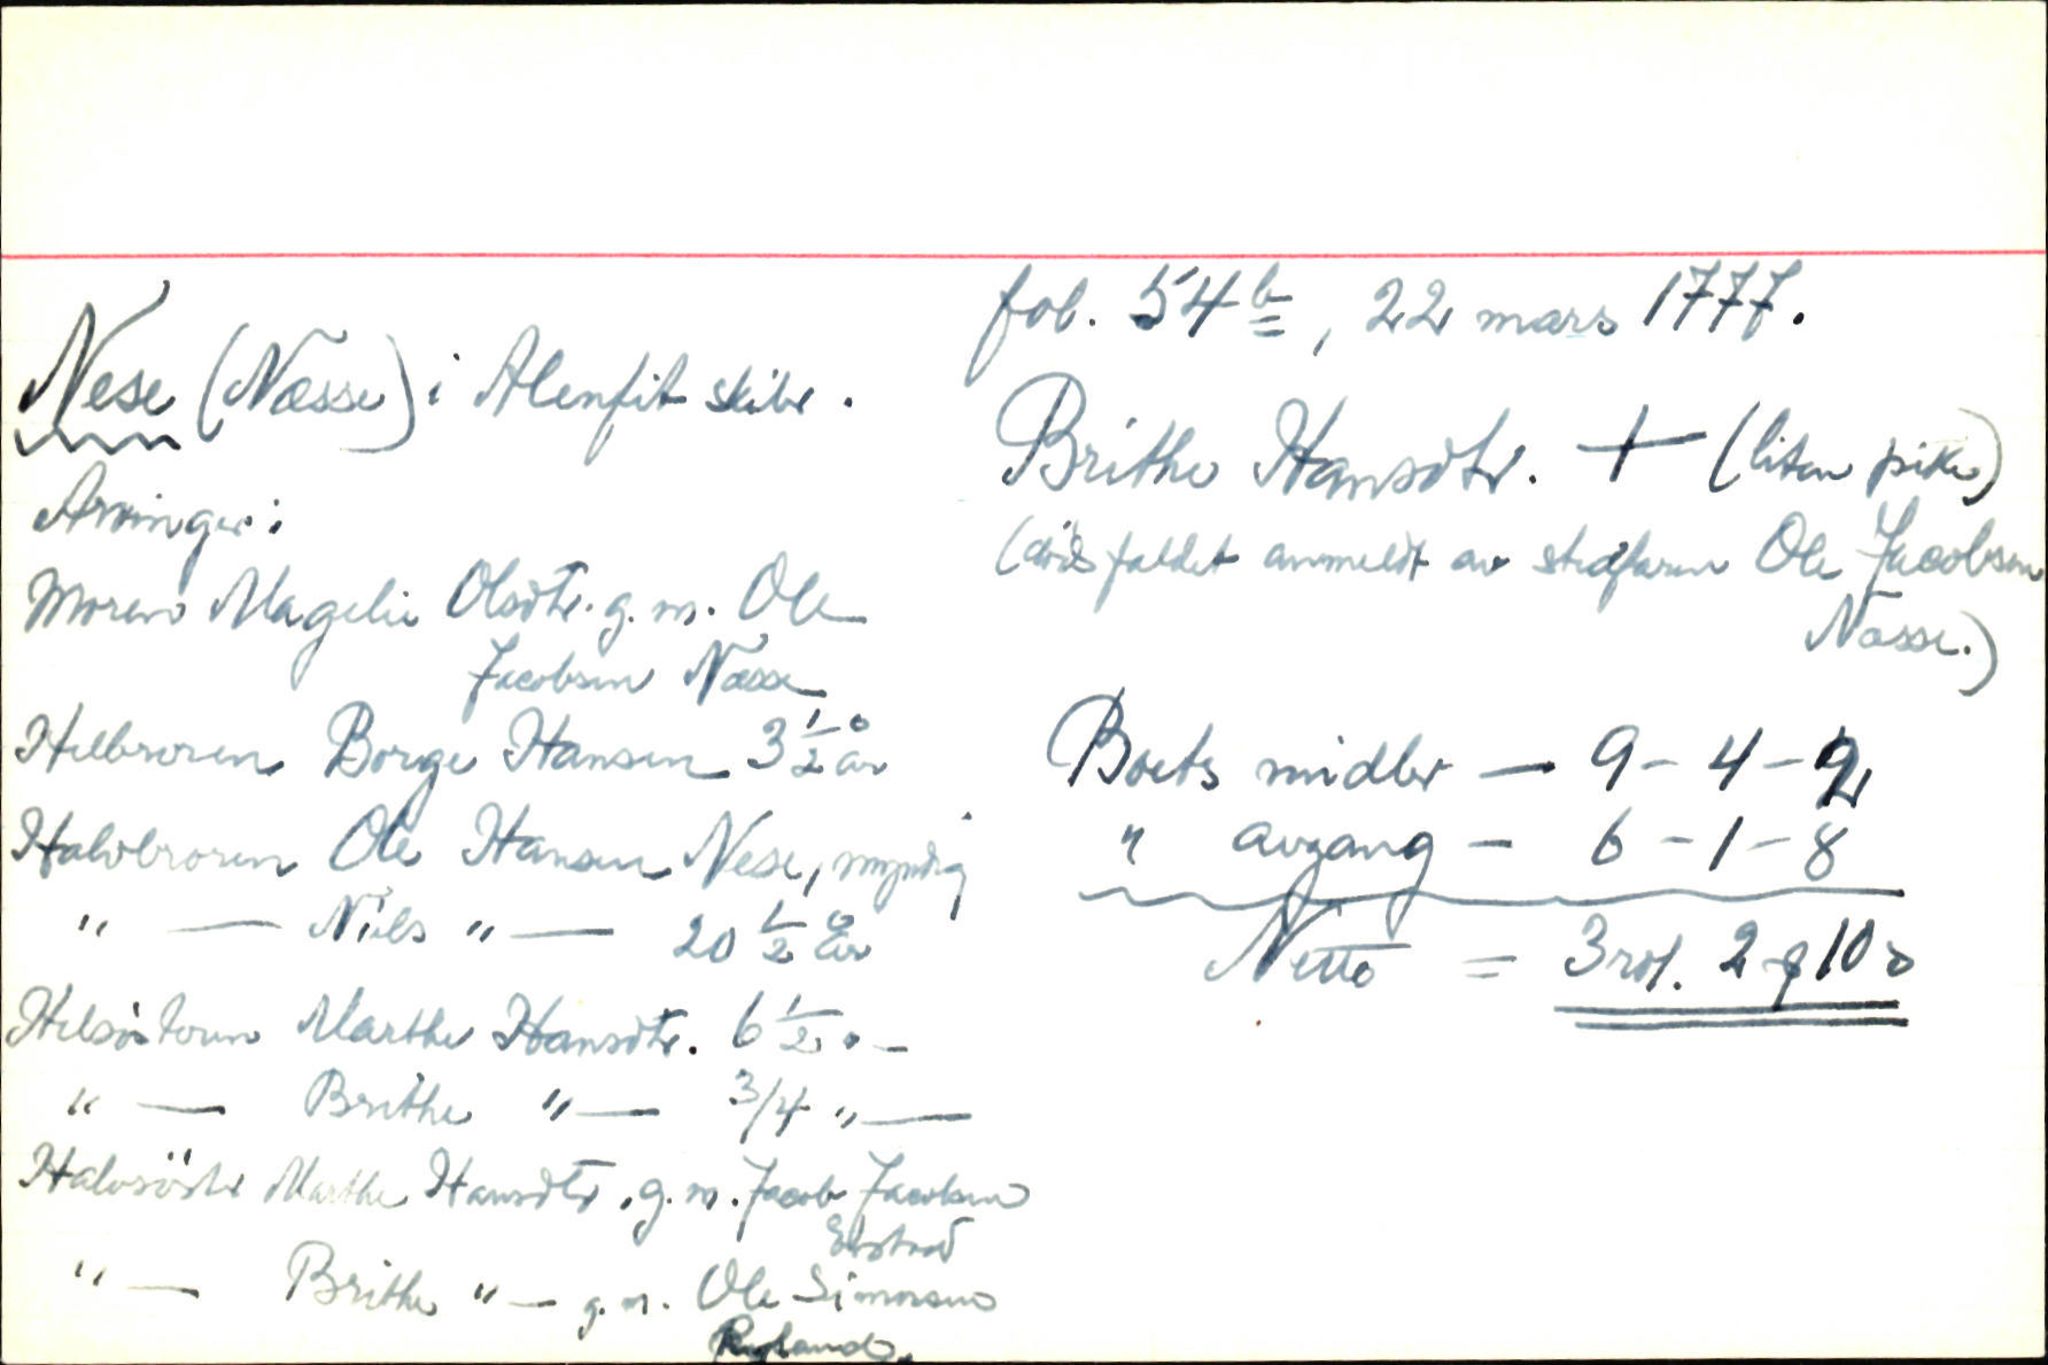 fol. 54 b, 22 mars 1777.
Nese (Næsse) i Alenfit skibr.
Brithe Hansdtr. + (liten pike)
(dödsfaldet anmeldt av stedfaren Ole Jacobsen
Næsse.)
Arvinger:
Moren Magelie Olsdtr. g. m. Ole
Jacobsen Næsse
Helbroren Borge Hansen 3 1/2 år
Halvbroren Ole Hansen Nese, myndig
" — Nils " — 20 1/2 år
Helsösteren Marthe Hansdtr. 6 1/2 " –
" — Brithe " — 3/4 " —
Halvsöster Marthe Hansdtr. g. m. Jacob Jacobsen
" — Brithe " — g. m. Ole Simonsen
Ryland.
Boets midler — 9 – 4 – 2
" avgang – 6 – 1 – 8
Netto = 3 rdl. 2 ꝗ 10 s